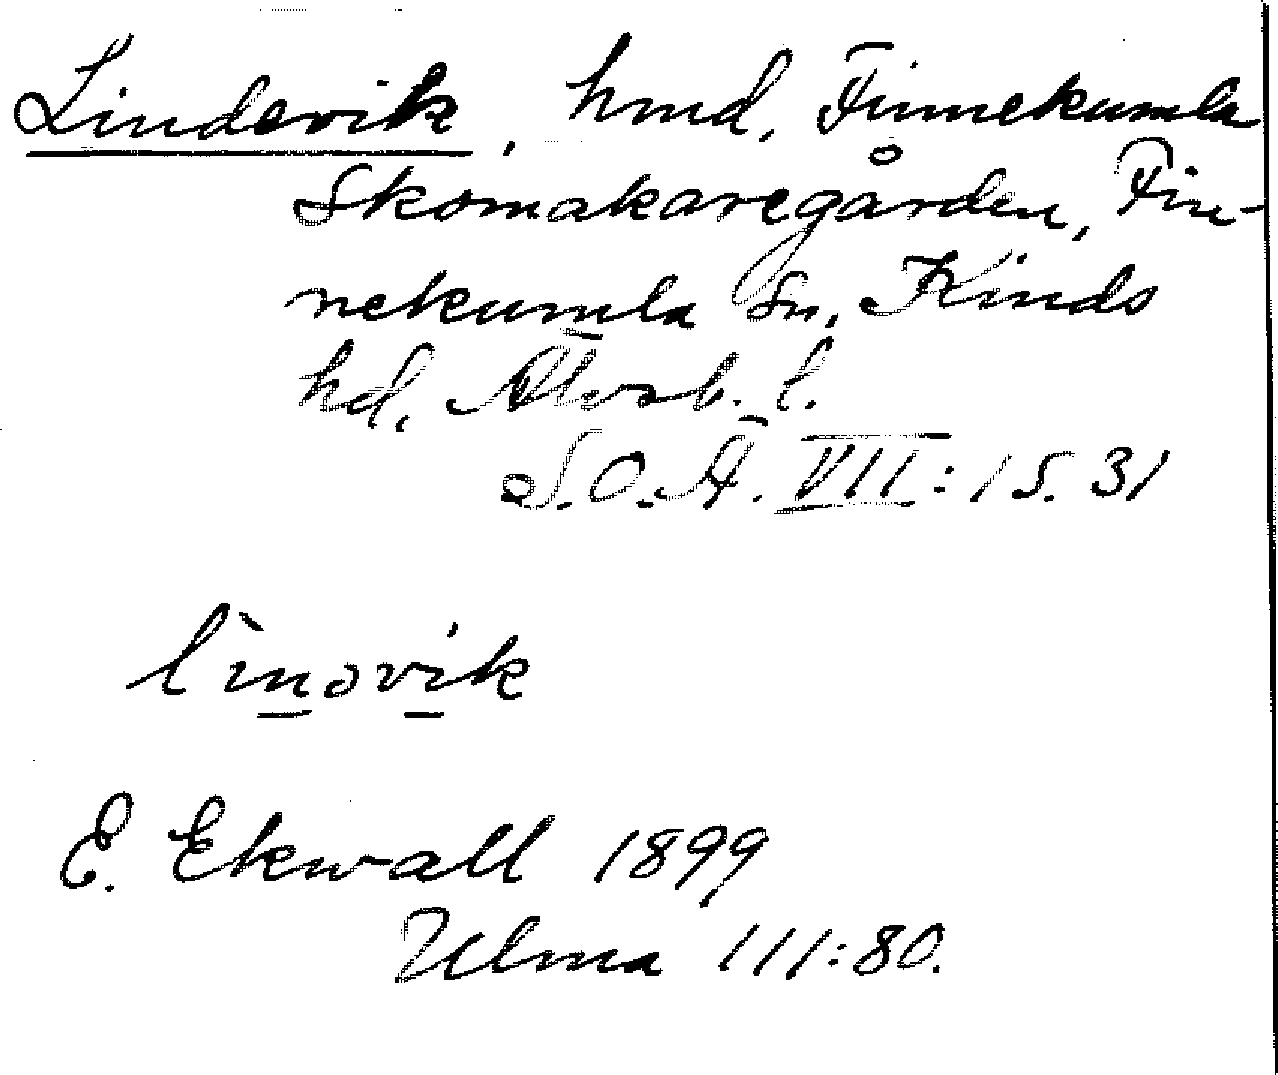 Lindevik, hmd, Finnekumla
Skomakaregården, Fin-
nekumla sn, Kinds
hd, Älvsb. l.
S.O.Ä. VII:1 S. 31
lìnəvík
E. Ekwall 1899
Ulma 111:80.